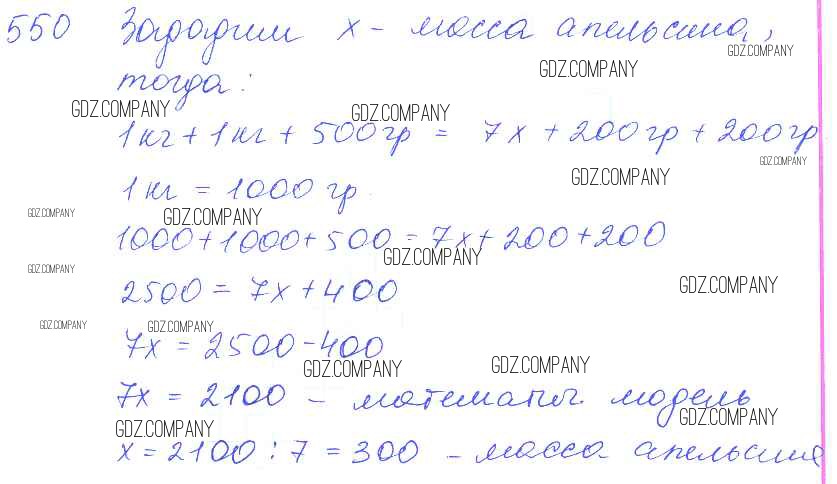 550 Зададим x - масса апельсина,
GDZ.COMPANY
тогда:
GDZ.COMPANY
GDZ.COMPANY GDZ.COMPANY
1 кг + 1 кг + 500 гр = 7x + 200 гр + 200 гр
GDZ.COMPANY
1 кг = 1000 гр
GDZ.COMPANY
GDZ.COMPANY GDZ.COMPANY
1000 + 1000 + 500 = 7x + 200 + 200
GDZ.COMPANY
GDZ.COMPANY
2500 = 7x + 400
GDZ.COMPANY
GDZ.COMPANY GDZ.COMPANY
7x = 2500 - 400
GDZ.COMPANY GDZ.COMPANY
7x = 2100 - математич. модель
GDZ.COMPANY
GDZ.COMPANY
x = 2100 : 7 = 300 - масса апельсина